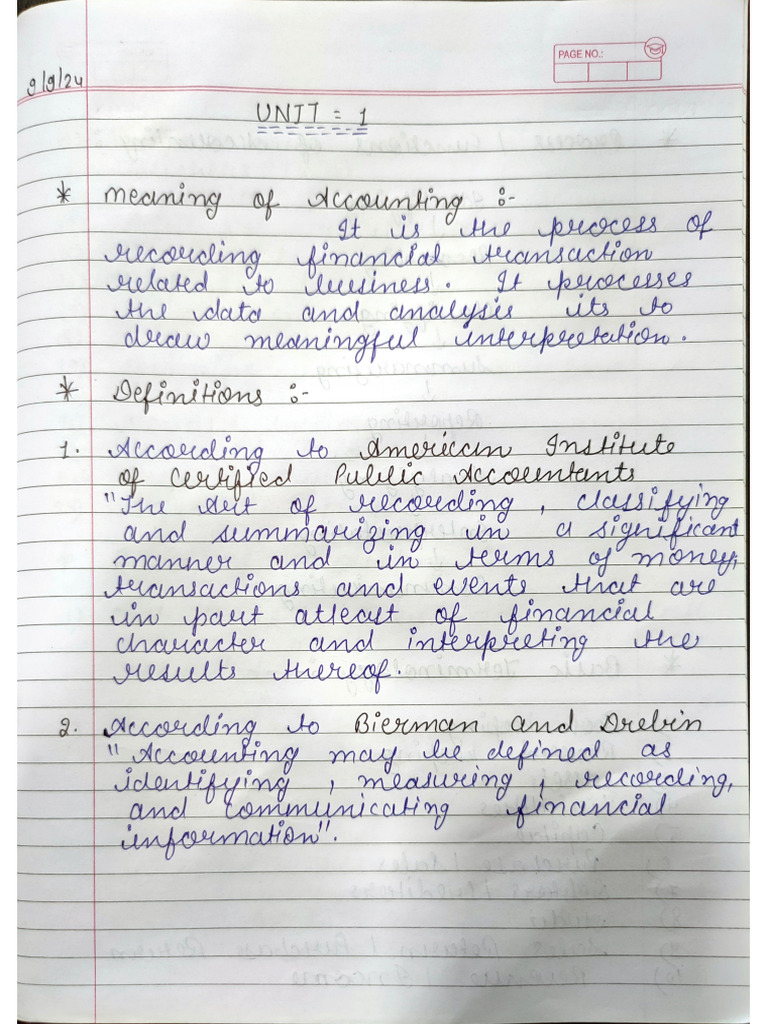 PAGE NO.:
9/9/24
UNIT = 1
* Meaning of Accounting :-
It is the process of
recording financial transaction
related to business. It processes
the data and analysis its to
draw meaningful interpretation.
* Definitions :-
1. According to American Institute
of Certified Public Accountants
"The Art of recording, classifying
and summarizing in a significant
manner and in terms of money,
transactions and events that are
in part atleast of financial
character and interpreting the
results thereof.
2. According to Bierman and Drebin
"Accounting may be defined as
identifying, measuring, recording,
and communicating financial
information".